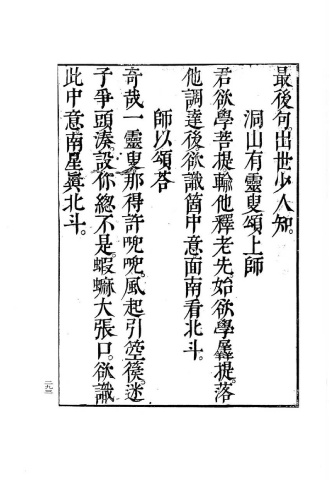 最後句。出世少人知。
洞山有靈叟頌上師
君欲學菩提輸他釋老先始欲學羼提。落
他調達後欲識箇中意面南看北斗。
師以頌荅
奇哉一靈叟那得許㖃㖃。風起引箜篌。迷
子爭頭湊。設你總不是。蝦䗫大張口。欲識
此中意。南星真北斗。
二九三